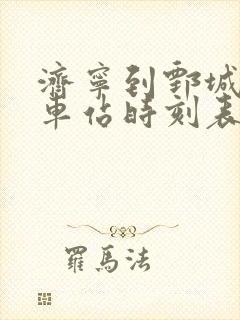 濟寧到鄄城
車佔時刻表
羅馬法